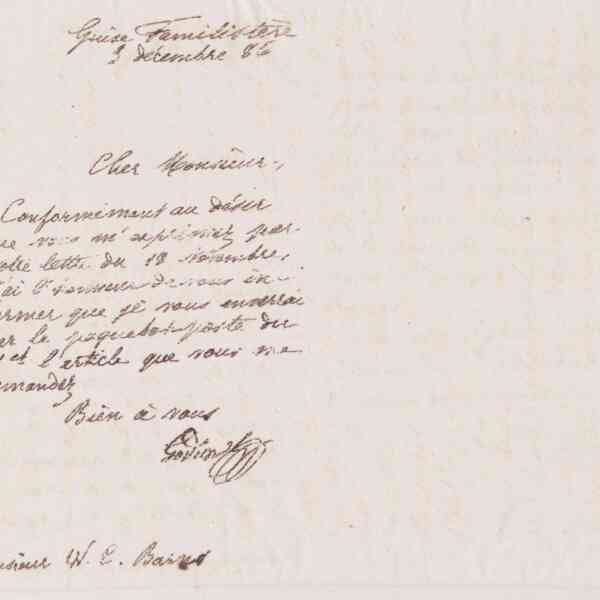 Guise Familistère
3 décembre 86
Cher Monsieur,
Conformément au désir
que vous m'exprimez par
votre lettre du 18 novembre,
j'ai l'honneur de vous in-
former que je vous enverrai
par le paquebot-poste du
et l'article que vous me
demandez
Bien à vous
Godin
Monsieur W. E. Barns